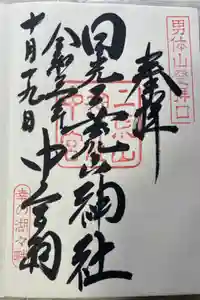 奉拝
男体山登拝口
日光二荒山神社
二荒山
中宮
中宮祠
令和三年
十月十九日
幸の湖